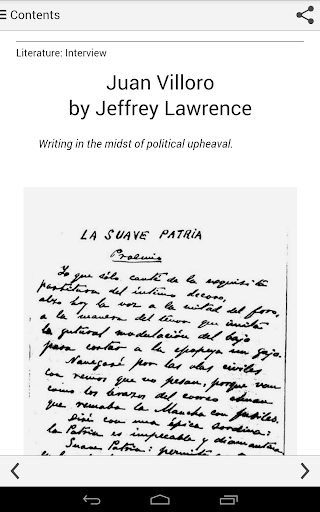 Contents
Literature: Interview
Juan Villoro
by Jeffrey Lawrence
Writing in the midst of political upheaval.
LA SUAVE PATRIA
Proemio
Yo que sólo canté de la exquisita
partitura del íntimo decoro,
alzo hoy la voz a la mitad del foro,
a la manera del tenor que imita
la gutural modulación del bajo
para cortar a la epopeya un gajo.
Navegaré por las olas civiles
con remos que no pesan, porque van
como los brazos del correo chuan
que remaba la Mancha con fusiles.
Diré con una épica sordina:
la Patria es impecable y diamantina
Suave Patria: